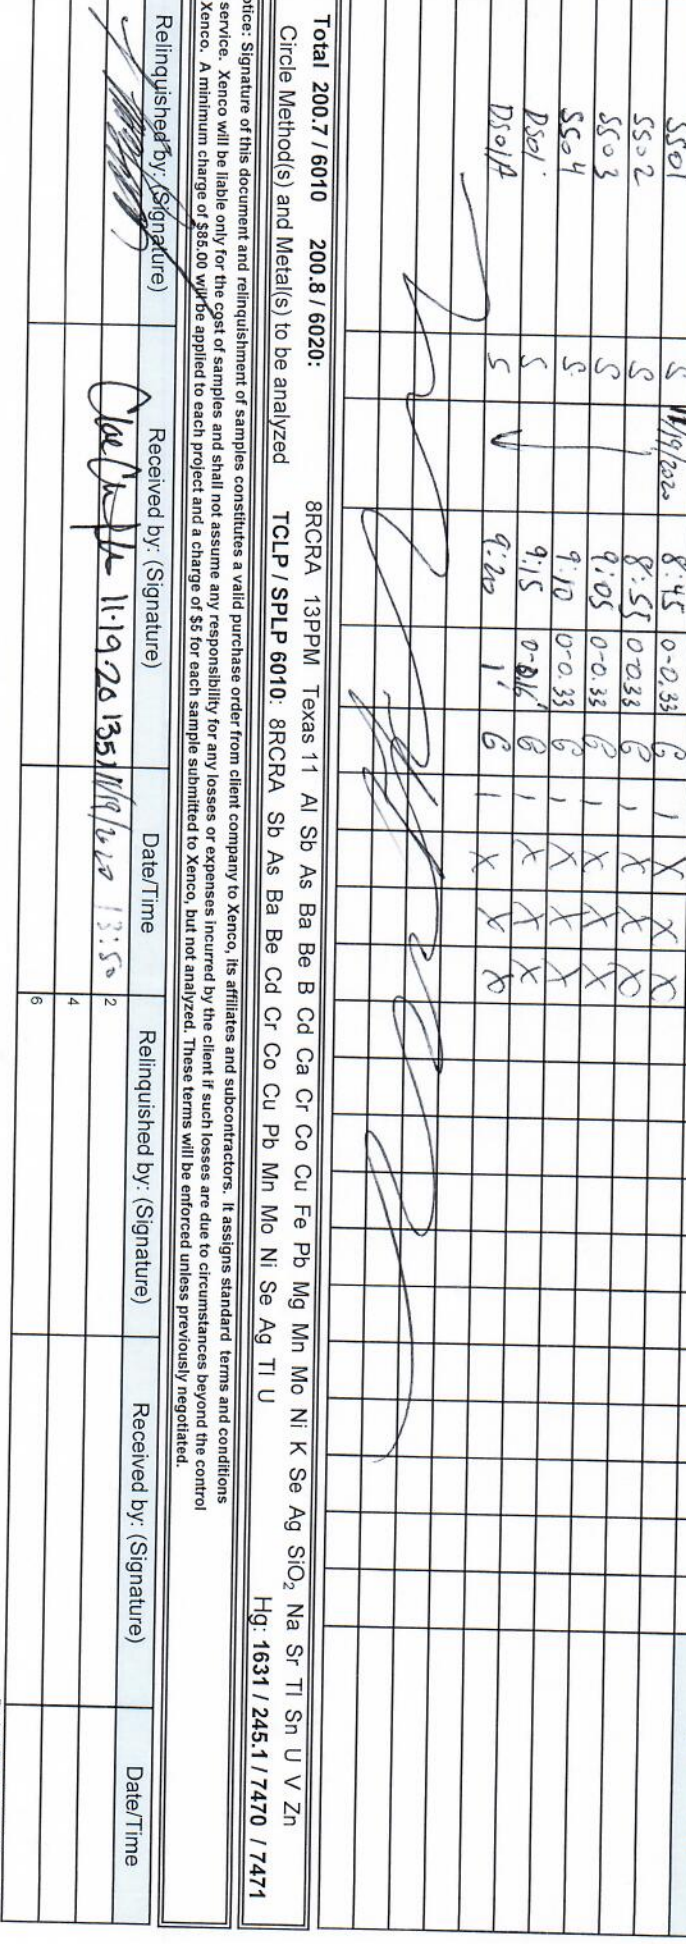 SS01 S 11/19/2020 8:45 0-0.33 G 1 X X X
SS02 S 8:55 0-0.33 G 1 X X X
SS03 S 9:05 0-0.33 G 1 X X X
SS04 S 9:10 0-0.33 G 1 X X X
DS01 S 9:15 G 1 X X X
DS01A S 9:20 1' G 1 X X X
Total 200.7 / 6010 200.8 / 6020: 8RCRA 13PPM Texas 11 Al Sb As Ba Be B Cd Ca Cr Co Cu Fe Pb Mg Mn Mo Ni K Se Ag SiO₂ Na Sr Tl Sn U V Zn
Circle Method(s) and Metal(s) to be analyzed TCLP / SPLP 6010: 8RCRA Sb As Ba Be Cd Cr Co Cu Pb Mn Mo Ni Se Ag Tl U Hg: 1631 / 245.1 / 7470 / 7471
otice: Signature of this document and relinquishment of samples constitutes a valid purchase order from client company to Xenco, its affiliates and subcontractors. It assigns standard terms and conditions
service. Xenco will be liable only for the cost of samples and shall not assume any responsibility for any losses or expenses incurred by the client if such losses are due to circumstances beyond the control
Xenco. A minimum charge of $85.00 will be applied to each project and a charge of $5 for each sample submitted to Xenco, but not analyzed. These terms will be enforced unless previously negotiated.
Relinquished by: (Signature) Received by: (Signature) Date/Time Relinquished by: (Signature) Received by: (Signature) Date/Time
11.19.20 1351 11/19/2020 13:50 2
4
6